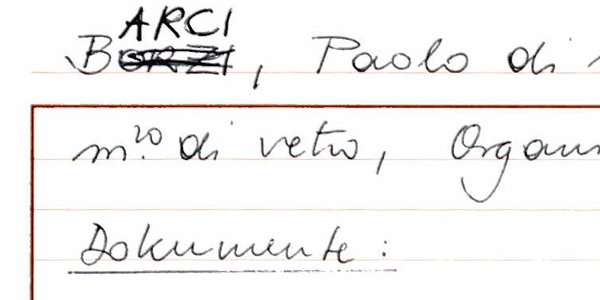 ARCI
BORZI, Paolo di
m.ro di vetro, Organ
Dokumente: